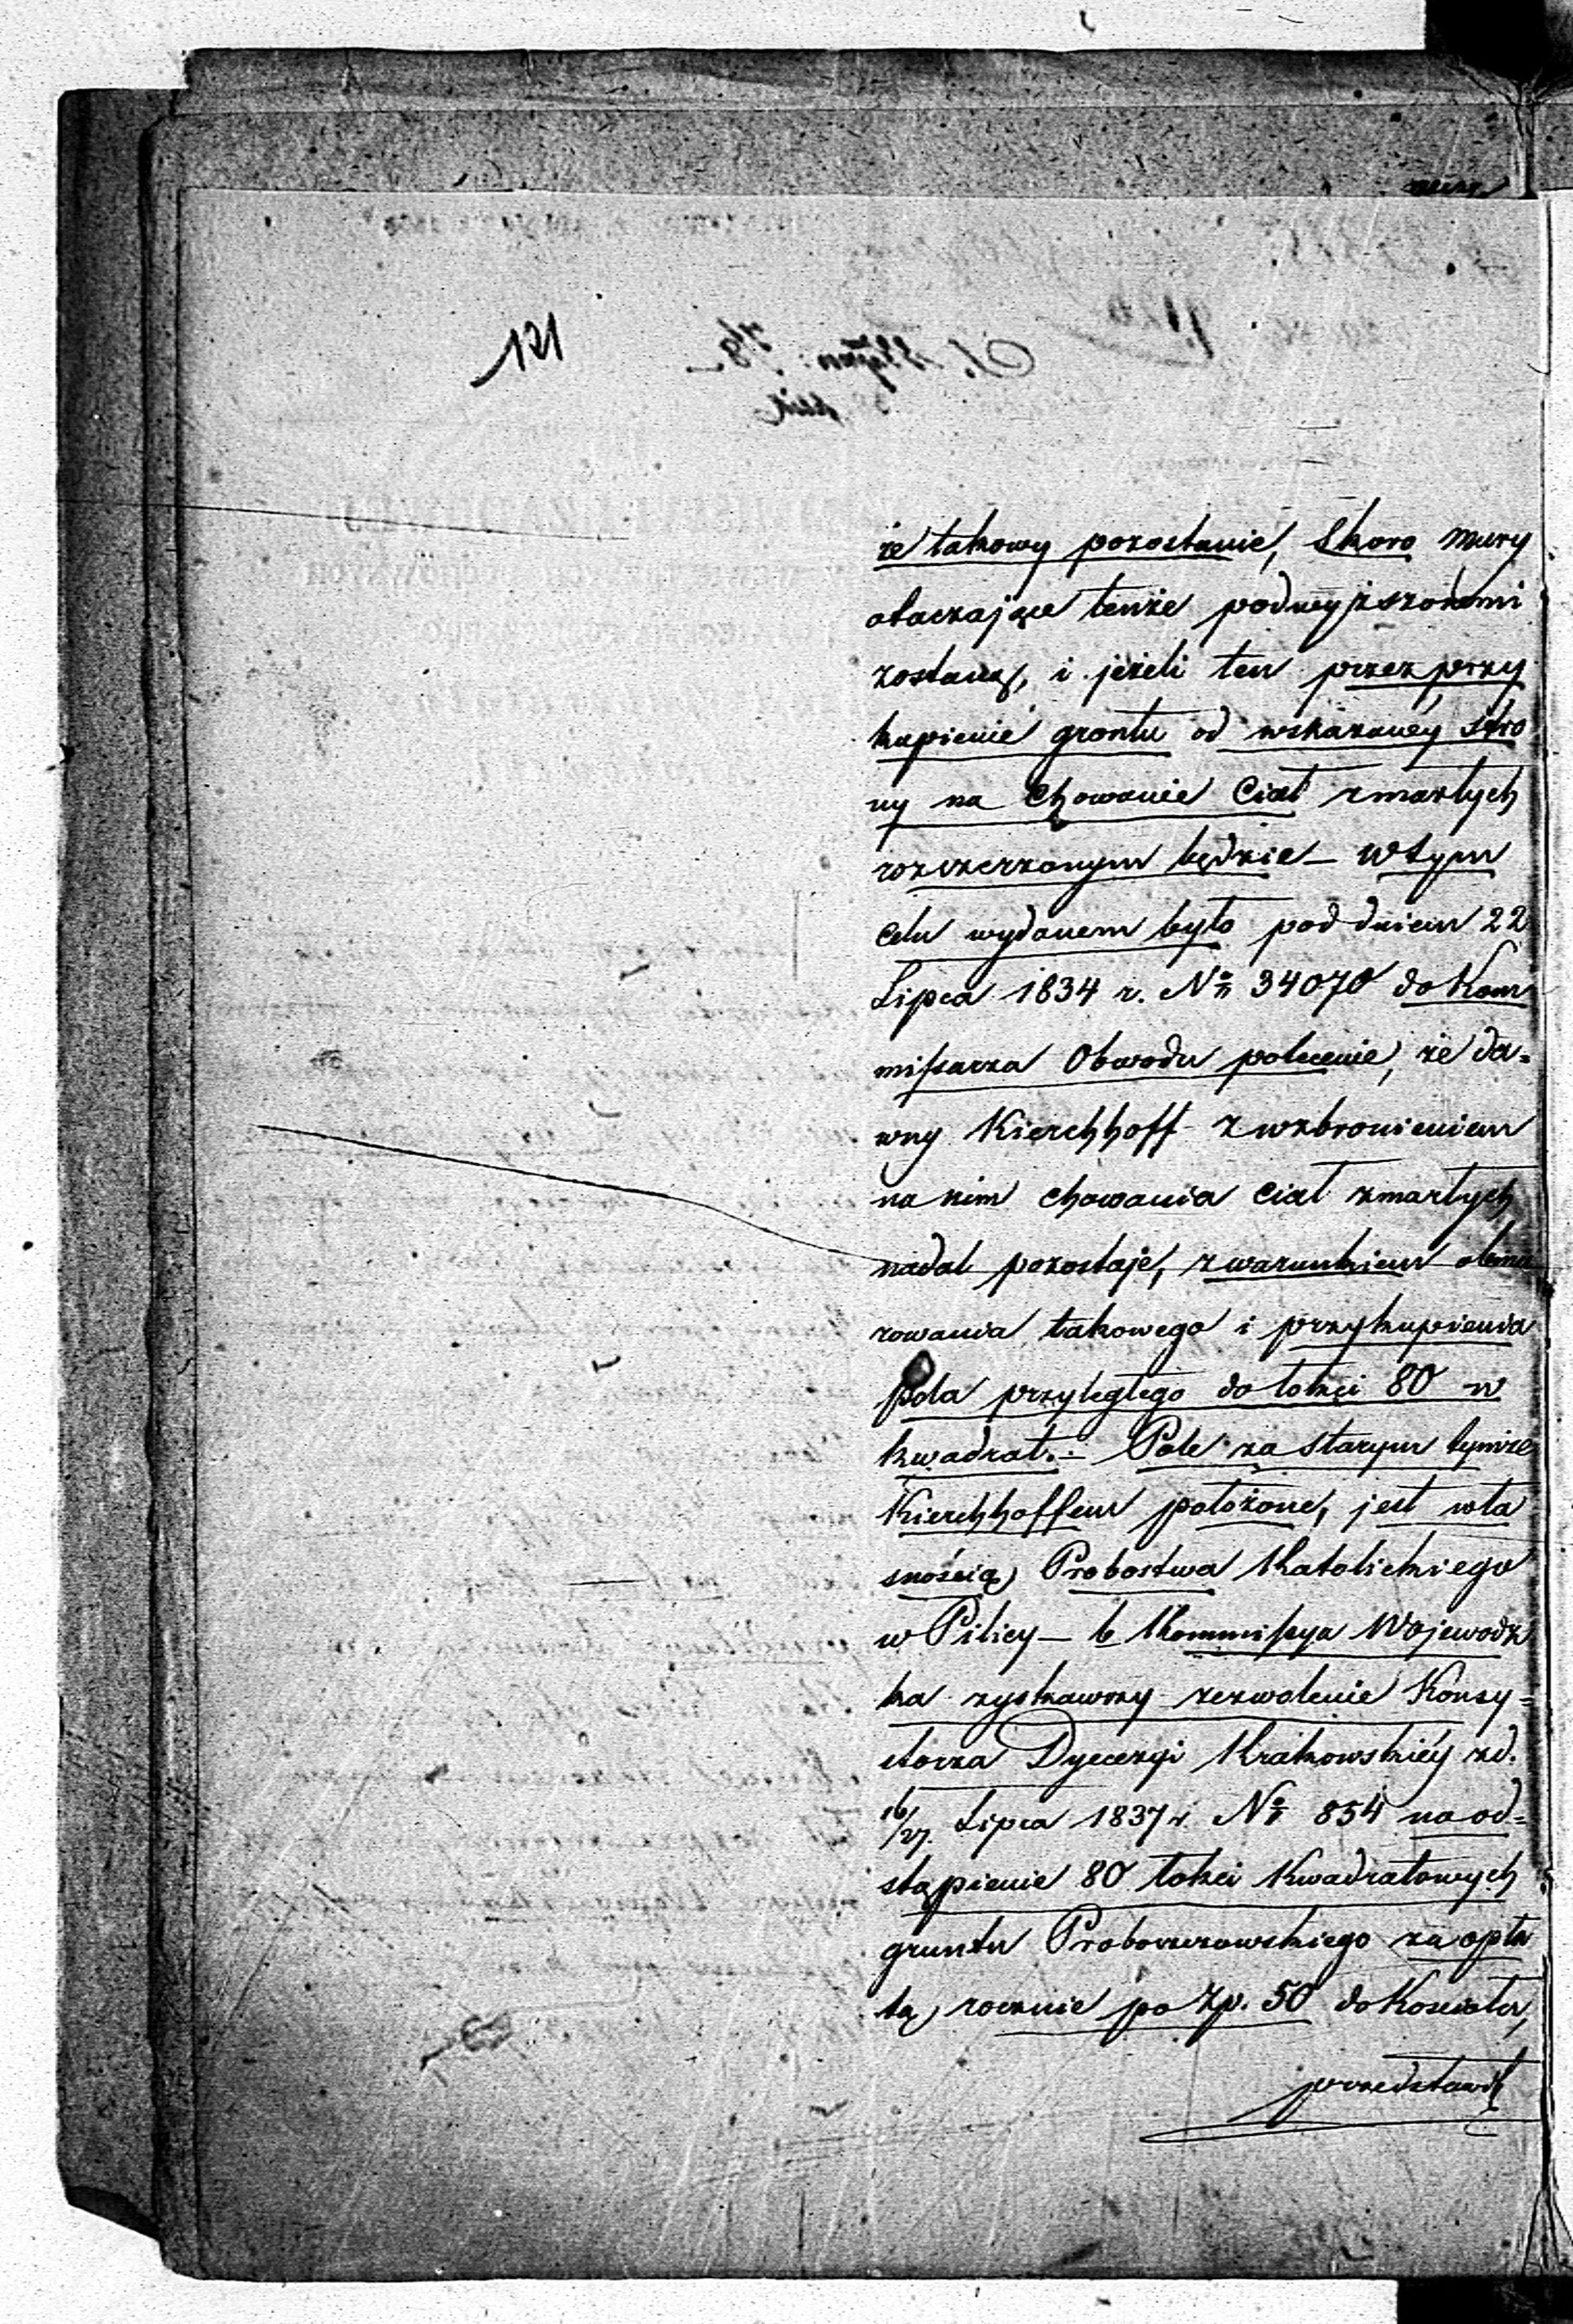 121
że takowy pozostanie, skoro mury
otaczające tenże podwyższonemi
zostaną, i jeżeli ten przez przy
kupienie grontu od wskazanéy stro
ny na chowanie Ciał zmarłych
rozszerzonym będzie – W tym
celu wydanem było pod dniem 22
Lipca 1834 r. No 34070 do Kom
missarza Obwodu polecenie, że da=
wny Kierchhoff z wzbronieniem
na nim chowania ciał zmarłych
nadal pozostaje, z warunkiem obmu
rowania takowego i przykupienia
pola przyległego do łokci 80 w
kwadrat. – Pole za starym tymże
Kierchhoffem położone, jest wła
snością Probostwa Katolickiego
w Pilicy – Kommissya Wojewodz
ka zyskawszy zezwolenie Konsy=
storza Dyecezyi Krakowskiéy z d.
16/27. Lipca 1837 r. No 854 na od=
stąpienie 80 łokci Kwadratowych
gruntu Proboszczowskiego za opła
tą rocznie po Zp. 50 do Kościoła,
przedstawił